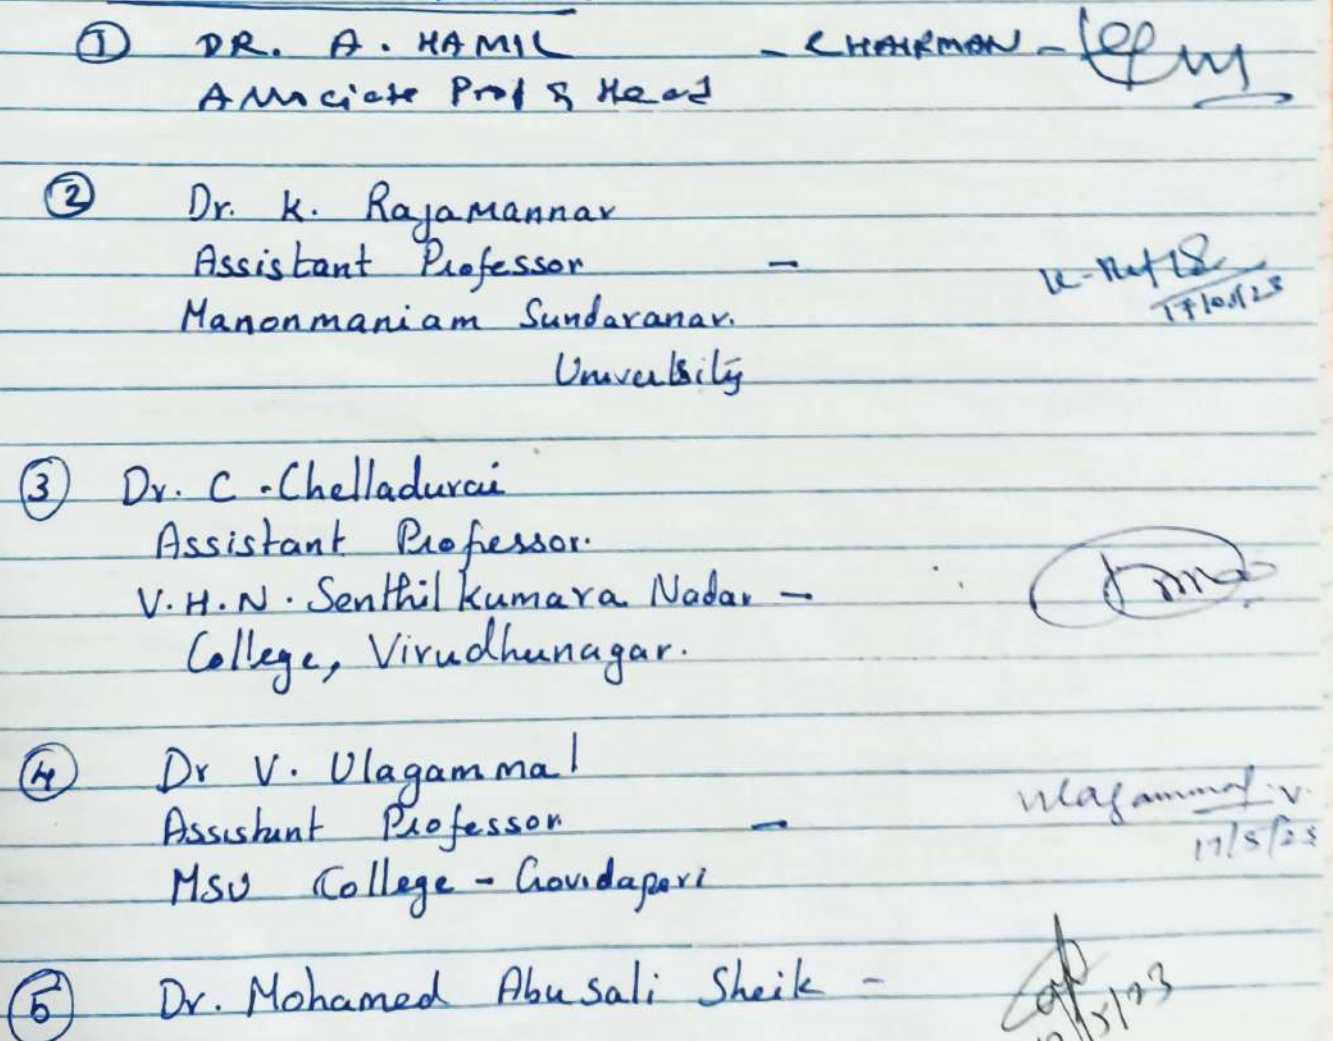 ① DR. A. HAMIL - CHAIRMAN -
Associate Prof & Head
② Dr. K. Rajamannar
Assistant Professor -
17/05/23
Manonmaniam Sundaranar.
University
③ Dr. C. Chelladurai
Assistant Professor.
V.H.N. Senthilkumara Nadar -
College, Virudhunagar.
④ Dr V. Ulagammal
Ulagammal.V.
Assistant Professor -
17/5/23
MSU College - Govidaperi
⑤ Dr. Mohamed Abusali Sheik -